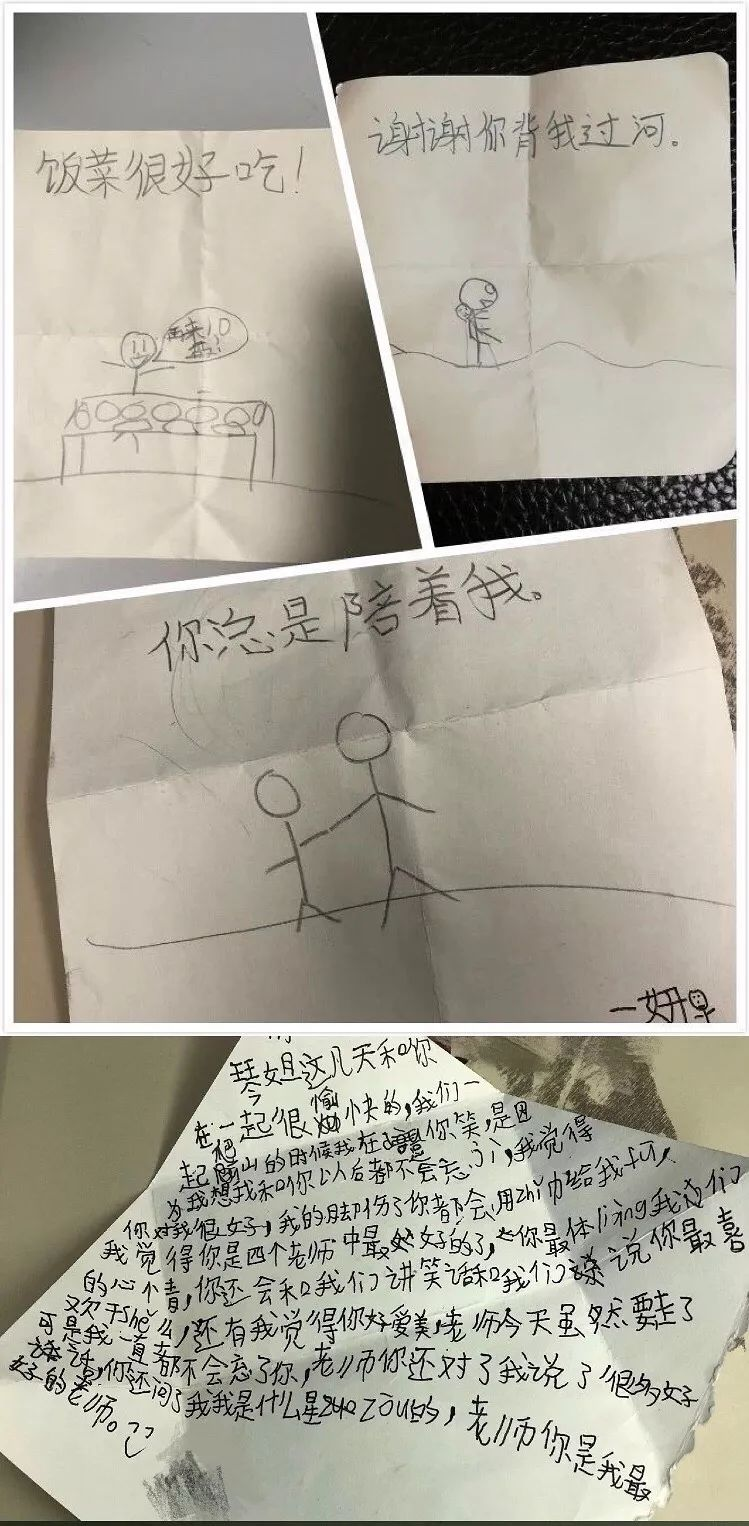 饭菜很好吃！
再来10
谢谢你背我过河。
你总是陪着我。
琴姐这几天和你
在一起很愉快的，我们一
起爬山的时候我在逗你笑，是因
为我想我和你以后都不会忘了，我觉得
你对我很好，我的脚伤了你都会用zhi巾给我
我觉得你是四个老师中最好的了，你最体liàng我们
的心情，你还会和我们讲笑话和我们说你最喜
欢干shén么，还有我觉得你好爱美，老师今天虽然要走了
可是我一直都不会忘了你，老师你还对了我说了很多好
话，你还问了我我是什么星zuo zòu的，老师你是我最
好的老师。